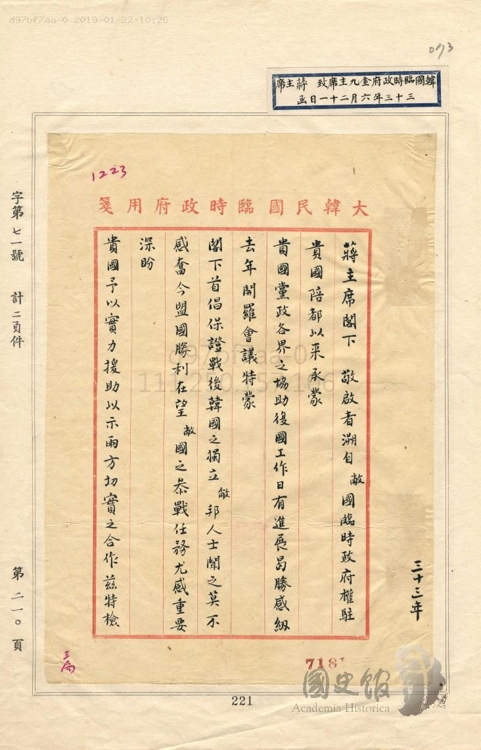 d97bf7aa-0 2019-01-22 10:26
073
韓國臨時政府金九主席致 蔣主席
三十三年六月二十一日函
1223
大韓民國臨時政府用箋
蔣主席閣下 敬啟者溯自敝國臨時政府權駐
貴國陪都以來承蒙
貴國黨政各界之協助復國工作日有進展曷勝感紉
去年開羅會議特蒙
閣下首倡保證戰後韓國之獨立敝邦人士聞之莫不
感奮今盟國勝利在望敝國之參戰任務尤感重要
深盼
貴國予以實力援助以示兩方切實之合作茲特檢
三十三年
字第七一號 計二頁件
第二一〇頁
718
221
國史館
Academia Historica